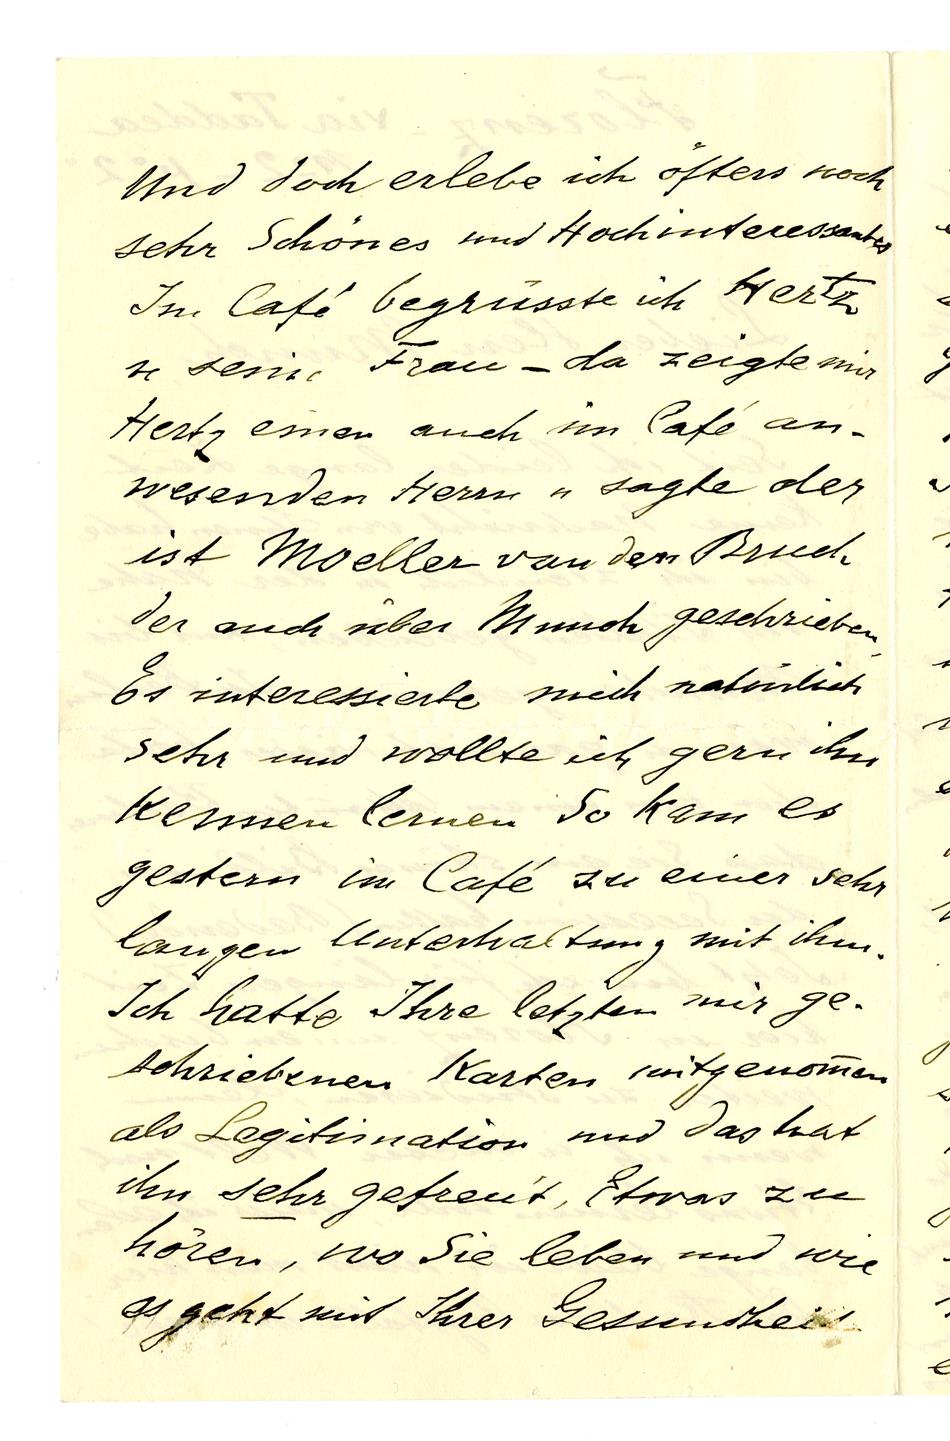 Und doch erlebe ich öfters noch
sehr Schönes und Hochinteressantes
Im Café begrüsste ich Hertz
u seine Frau – da zeigte mir
Hertz einen auch im Café an-
wesenden Herrn u sagte der
ist Moeller van den Bruck
der auch über Munch geschrieben.
Es interessierte mich natürlich
sehr und wollte ich gern ihn
kennen lernen So kam es
gestern im Café zu einer sehr
langen Unterhaltung mit ihm.
Ich hatte Ihre letzten mir ge-
schriebenen Karten mitgenom̅en
als Legitimation und das hat
ihn sehr gefreut, Etwas zu
hören, wo Sie leben und wie
es geht mit Ihrer Gesundheit